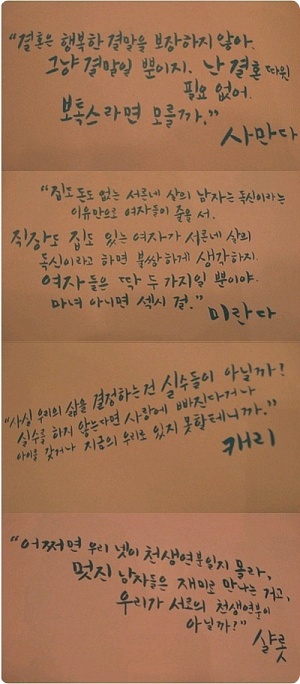 "결혼은 행복한 결말을 보장하지 않아.
그냥 결말일 뿐이지. 난 결혼 따윈
필요 없어.
보톡스라면 모를까."
사만다
"집도 돈도 없는 서른네 살의 남자는 독신이라는
이유만으로 여자들이 줄을 서.
직장도 집도 있는 여자가 서른네 살의
독신이라고 하면 불쌍하게 생각하지.
여자들은 딱 두 가지일 뿐이야.
마녀 아니면 섹시 걸."
미란다
우리의 삶을 결정하는 건 실수들이 아닐까?
"사실 실수를 하지 않는다면 사랑에 빠진다거나
아이를 갖거나 지금의 우리로 있지 못할테니까."
캐리
"어쩌면 우리 넷이 천생연분일지 몰라,
멋진 남자들은 재미로 만나는 거고,
우리가 서로의 천생연분이
아닐까?"
샬롯